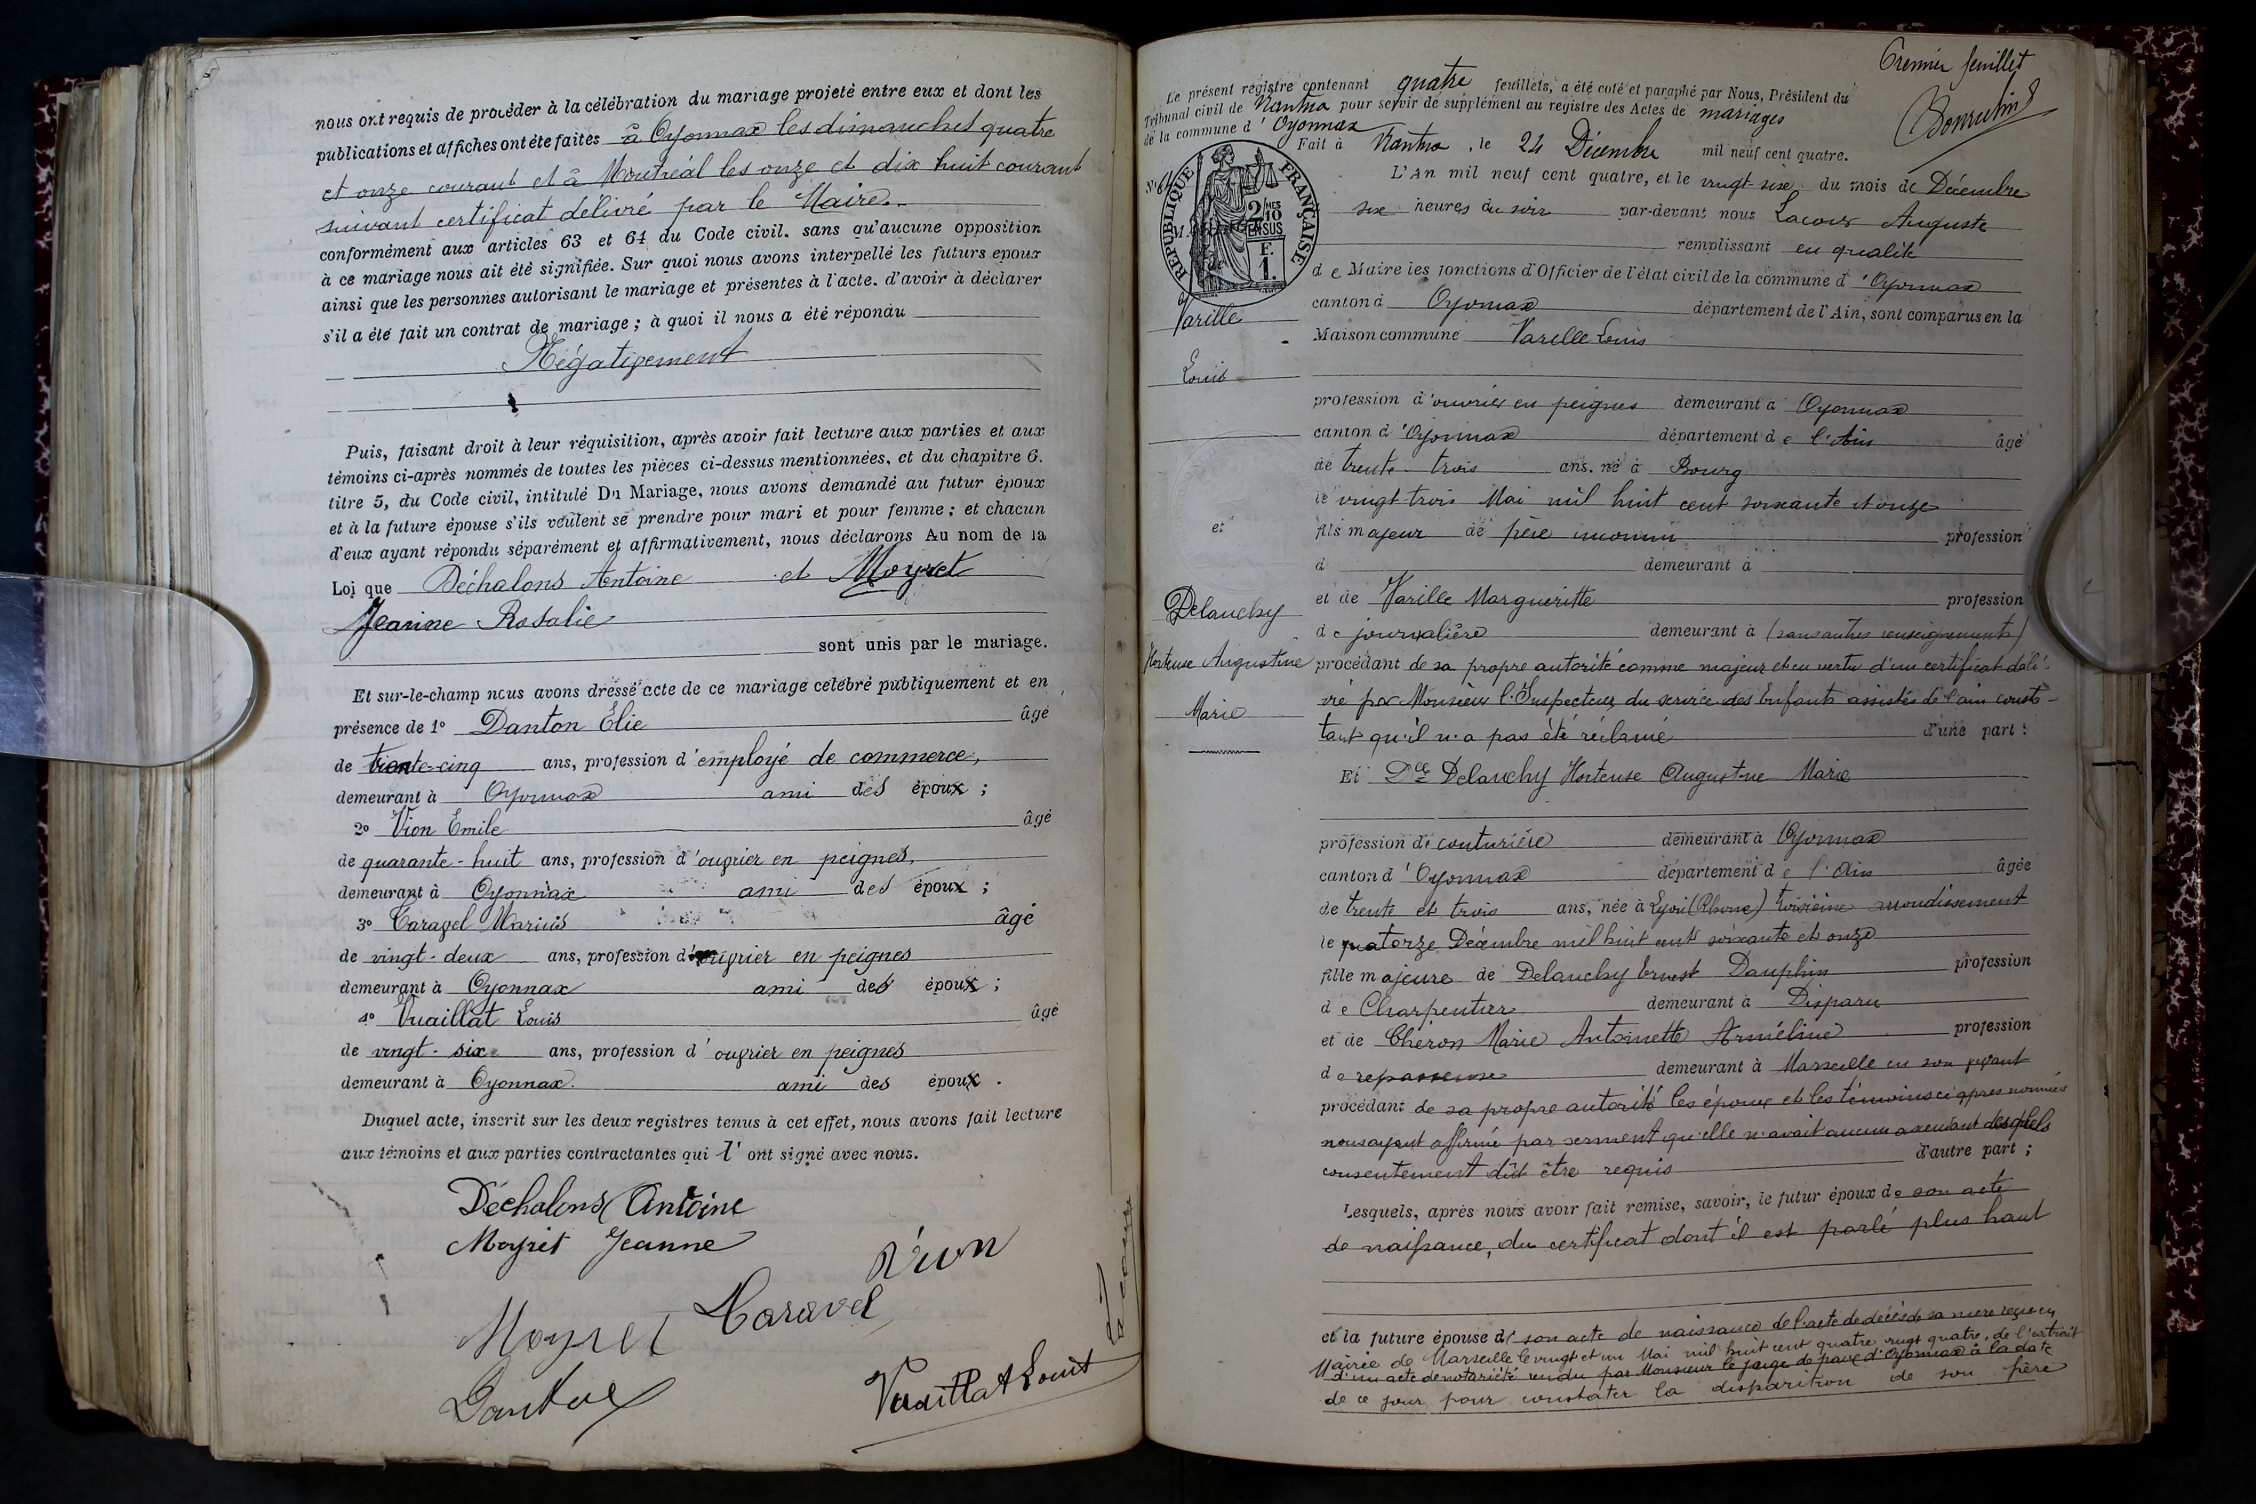 nous ont requis de procéder à la célébration du mariage projeté entre eux et dont les
publications et affiches ont été faites à Oyonnax les dimanches quatre
et onze courant et à Montréal les onze et dix huit courant
suivant certificat délivré par le Maire.-
conformément aux articles 63 et 64 du Code civil. sans qu'aucune opposition
à ce mariage nous ait été signifiée. Sur quoi nous avons interpellé les futurs époux
ainsi que les personnes autorisant le mariage et présentes à l'acte. d'avoir à déclarer
s'il a été fait un contrat de mariage ; à quoi il nous a été répondu
Négativement
Puis, faisant droit à leur réquisition, après avoir fait lecture aux parties et aux
témoins ci-après nommés de toutes les pièces ci-dessus mentionnées, et du chapitre 6.
titre 5, du Code civil, intitulé Du Mariage, nous avons demandé au futur époux
et à la future épouse s'ils veulent se prendre pour mari et pour femme ; et chacun
d'eux ayant répondu séparément et affirmativement, nous déclarons Au nom de la
Loi que Déchalons Antoine et Moyret
Jeanne Rosalie
sont unis par le mariage.
Et sur-le-champ nous avons dressé acte de ce mariage célébré publiquement et en
présence de 1° Danton Élie âgé
de trente-cinq ans, profession d'employé de commerce,
demeurant à Oyonnax ami des époux ;
2° Vion Emile âgé
de quarante-huit ans, profession d'ouvrier en peignes,
demeurant à Oyonnax ami des époux ;
3° Caravel Marius âgé
de vingt-deux ans, profession d'ouvrier en peignes
demeurant à Oyonnax ami des époux ;
4° Vuaillat Louis âgé
de vingt-six ans, profession d'ouvrier en peignes
demeurant à Oyonnax. ami des époux.
Duquel acte, inscrit sur les deux registres tenus à cet effet, nous avons fait lecture
aux témoins et aux parties contractantes qui l'ont signé avec nous.
Déchalons Antoine
Moyret Jeanne
Vion
Moyret Caravel
Danton
Vuaillat Louis
Lacour
Premier feuillet
Le présent registre contenant quatre feuillets, a été coté et paraphé par Nous, Président du
Tribunal civil de Nantua pour servir de supplément au registre des Actes de mariages
de la commune d'Oyonnax
Fait à Nantua, le 24 Décembre mil neuf cent quatre.
RÉPUBLIQUE FRANÇAISE
2/10 MES
EN SUS
F.
1.
L'An mil neuf cent quatre, et le vingt-six du mois de Décembre
six heures du soir par-devant nous Lacour Auguste
remplissant en qualité
de Maire les fonctions d'Officier de l'état civil de la commune d'Oyonnax
canton d Oyonnax département de l'Ain, sont comparus en la
Maison commune Varille Louis
Varille
Louis
et
Delauchy
Hortense Augustine
Marie
profession d'ouvrier en peignes demeurant à Oyonnax
canton d'Oyonnax département de l'Ain âgé
de trente-trois ans. né à Bourg
le vingt-trois Mai mil huit cent soixante et onze
fils majeur de père inconnu profession
d demeurant à
et de Varille Margueritte profession
de journalière demeurant à (sans autres renseignements)
procédant de sa propre autorité comme majeur et en vertu d'un certificat déli-
vré par Monsieur l'Inspecteur du service des Enfants assistés de l'ain consta-
tant qu'il n'a pas été réclamé d'une part :
Et Dlle Delauchy Hortense Augustine Marie
profession de couturière demeurant à Oyonnax
canton d'Oyonnax département de l'Ain âgée
de trente et trois ans, née à Lyon (Rhône) troisième arrondissement
le quatorze Décembre mil huit cent soixante et onze
fille majeure de Delauchy Ernest Dauphin profession
de Charpentier demeurant à Disparu
et de Chéron Marie Antoinette Arméline profession
de repasseuse demeurant à Marseille en son vivant
procédant de sa propre autorité les époux et les témoins ci après nommés
nous ayant affirmé par serment qu'elle n'avait aucun ascendant desquels
consentement dût être requis d'autre part ;
Lesquels, après nous avoir fait remise, savoir, le futur époux de son acte
de naissance, du certificat dont il est parlé plus haut
et la future épouse de son acte de naissance de l'acte de décès de sa mère reçu en
Mairie de Marseille le vingt et un Mai mil huit cent quatre vingt quatre, de l'extrait
d'un acte de notoriété rendu par Monsieur le juge de paix d'Oyonnax à la date
de ce jour pour constater la disparition de son père